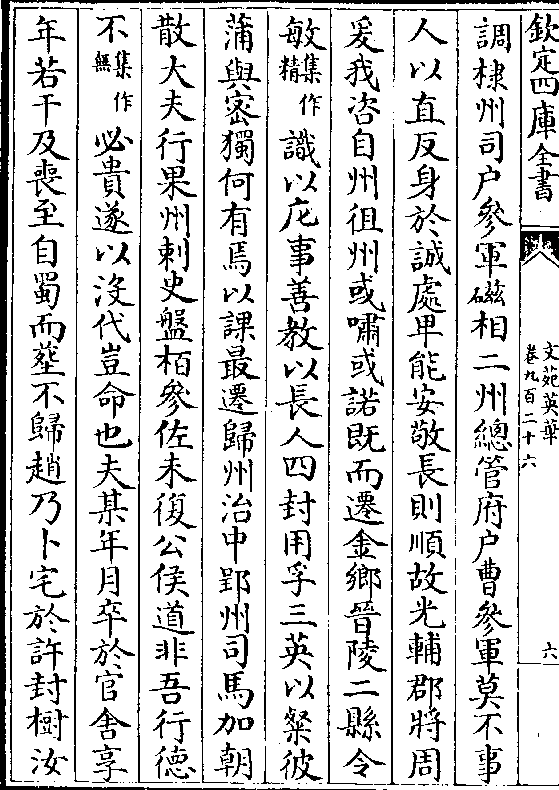 欽定四庫全書
文苑英華
卷九百二十六
六
調棣州司户參軍磁相二州總管府户曹參軍莫不事
人以直反身於誠處卑能安敬長則順故光輔郡將周
爰我咨自州徂州或嘯或諾既而遷金鄉晉陵二縣令
敏集作精識以庀事善教以長人四封用孚三英以粲彼
蒲與密獨何有焉以課最遷歸州治中郢州司馬加朝
散大夫行果州刺史盤桓參佐未復公侯道非吾行德
不集作無必貴遂以沒代豈命也夫某年月卒於官舍享
年若干及喪至自蜀而塟不歸趙乃卜宅於許封樹汝